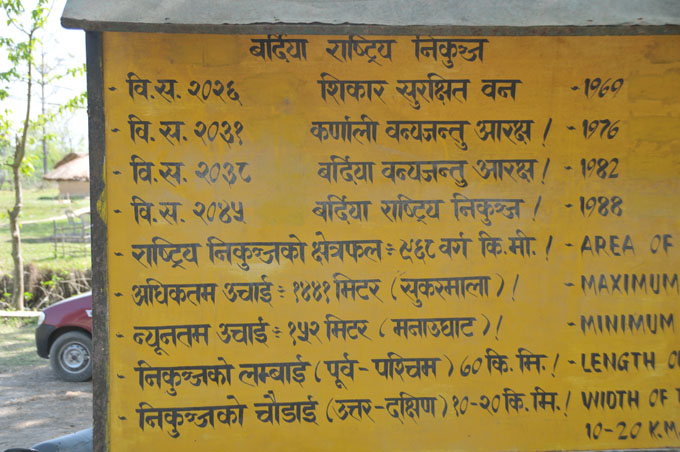 बर्दिया राष्ट्रिय निकुञ्ज
- वि.स. २०२६ शिकार सुरक्षित वन - 1969
- वि.स. २०३१ कर्णाली वन्यजन्तु आरक्ष ! - 1976
- वि.स. २०३८ बर्दिया वन्यजन्तु आरक्ष ! - 1982
- वि.स. २०४५ बर्दिया राष्ट्रिय निकुञ्ज ! - 1988
- राष्ट्रिय निकुञ्जको क्षेत्रफल : ९६८ वर्ग कि.मी. ! - AREA OF
- अधिकतम उचाई : १४४१ मिटर (सुकरमाला) ! - MAXIMUM
- न्यूनतम उचाई : १५२ मिटर (मनाउघाट) ! - MINIMUM
- निकुञ्जको लम्बाई (पूर्व - पश्चिम) ६० कि. मि. ! - LENGTH O
- निकुञ्जको चौडाई (उत्तर - दक्षिण) १०-२० कि. मि. ! WIDTH OF T
10-20 K.M.